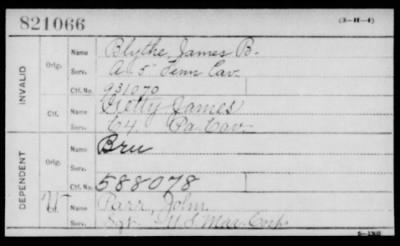 821066 (3-H-4)
INVALID
Orig. Name Blythe, James B.
Serv. A 5 Tenn Cav.
Ctf. No. 931070
Ctf. Name Getty James
Serv. E 4 Pa Cav
DEPENDENT
Orig. Name Bru
Serv.
Ctf. No. 588078
Ctf. Name Parr, John
Serv. Sgt. U S Mar Corps